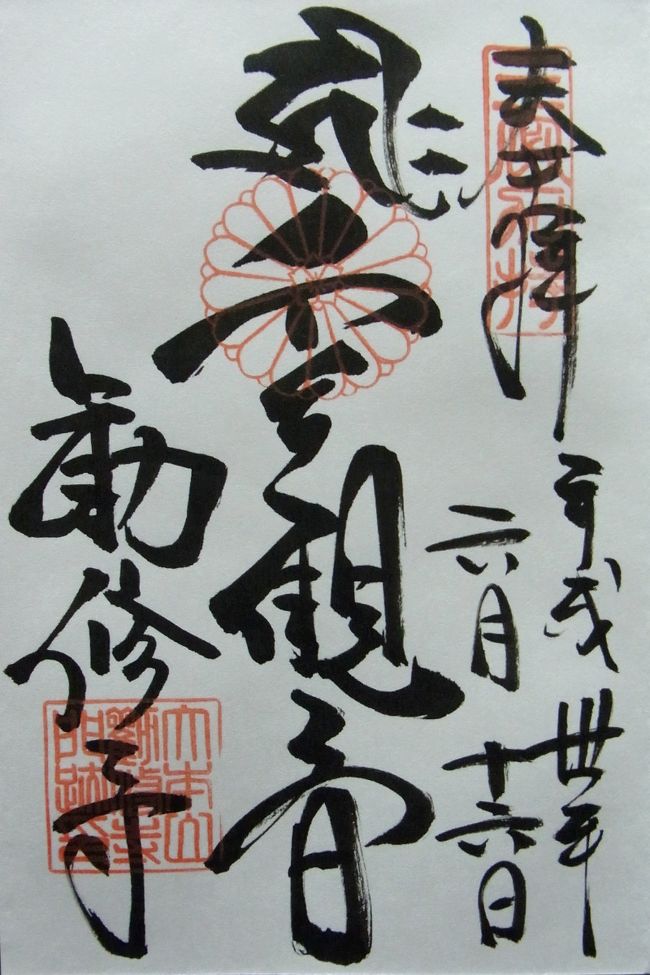 奉拝
平成卅年
六月十六日
千手観音
勧修寺
大本山
勧修寺
門跡